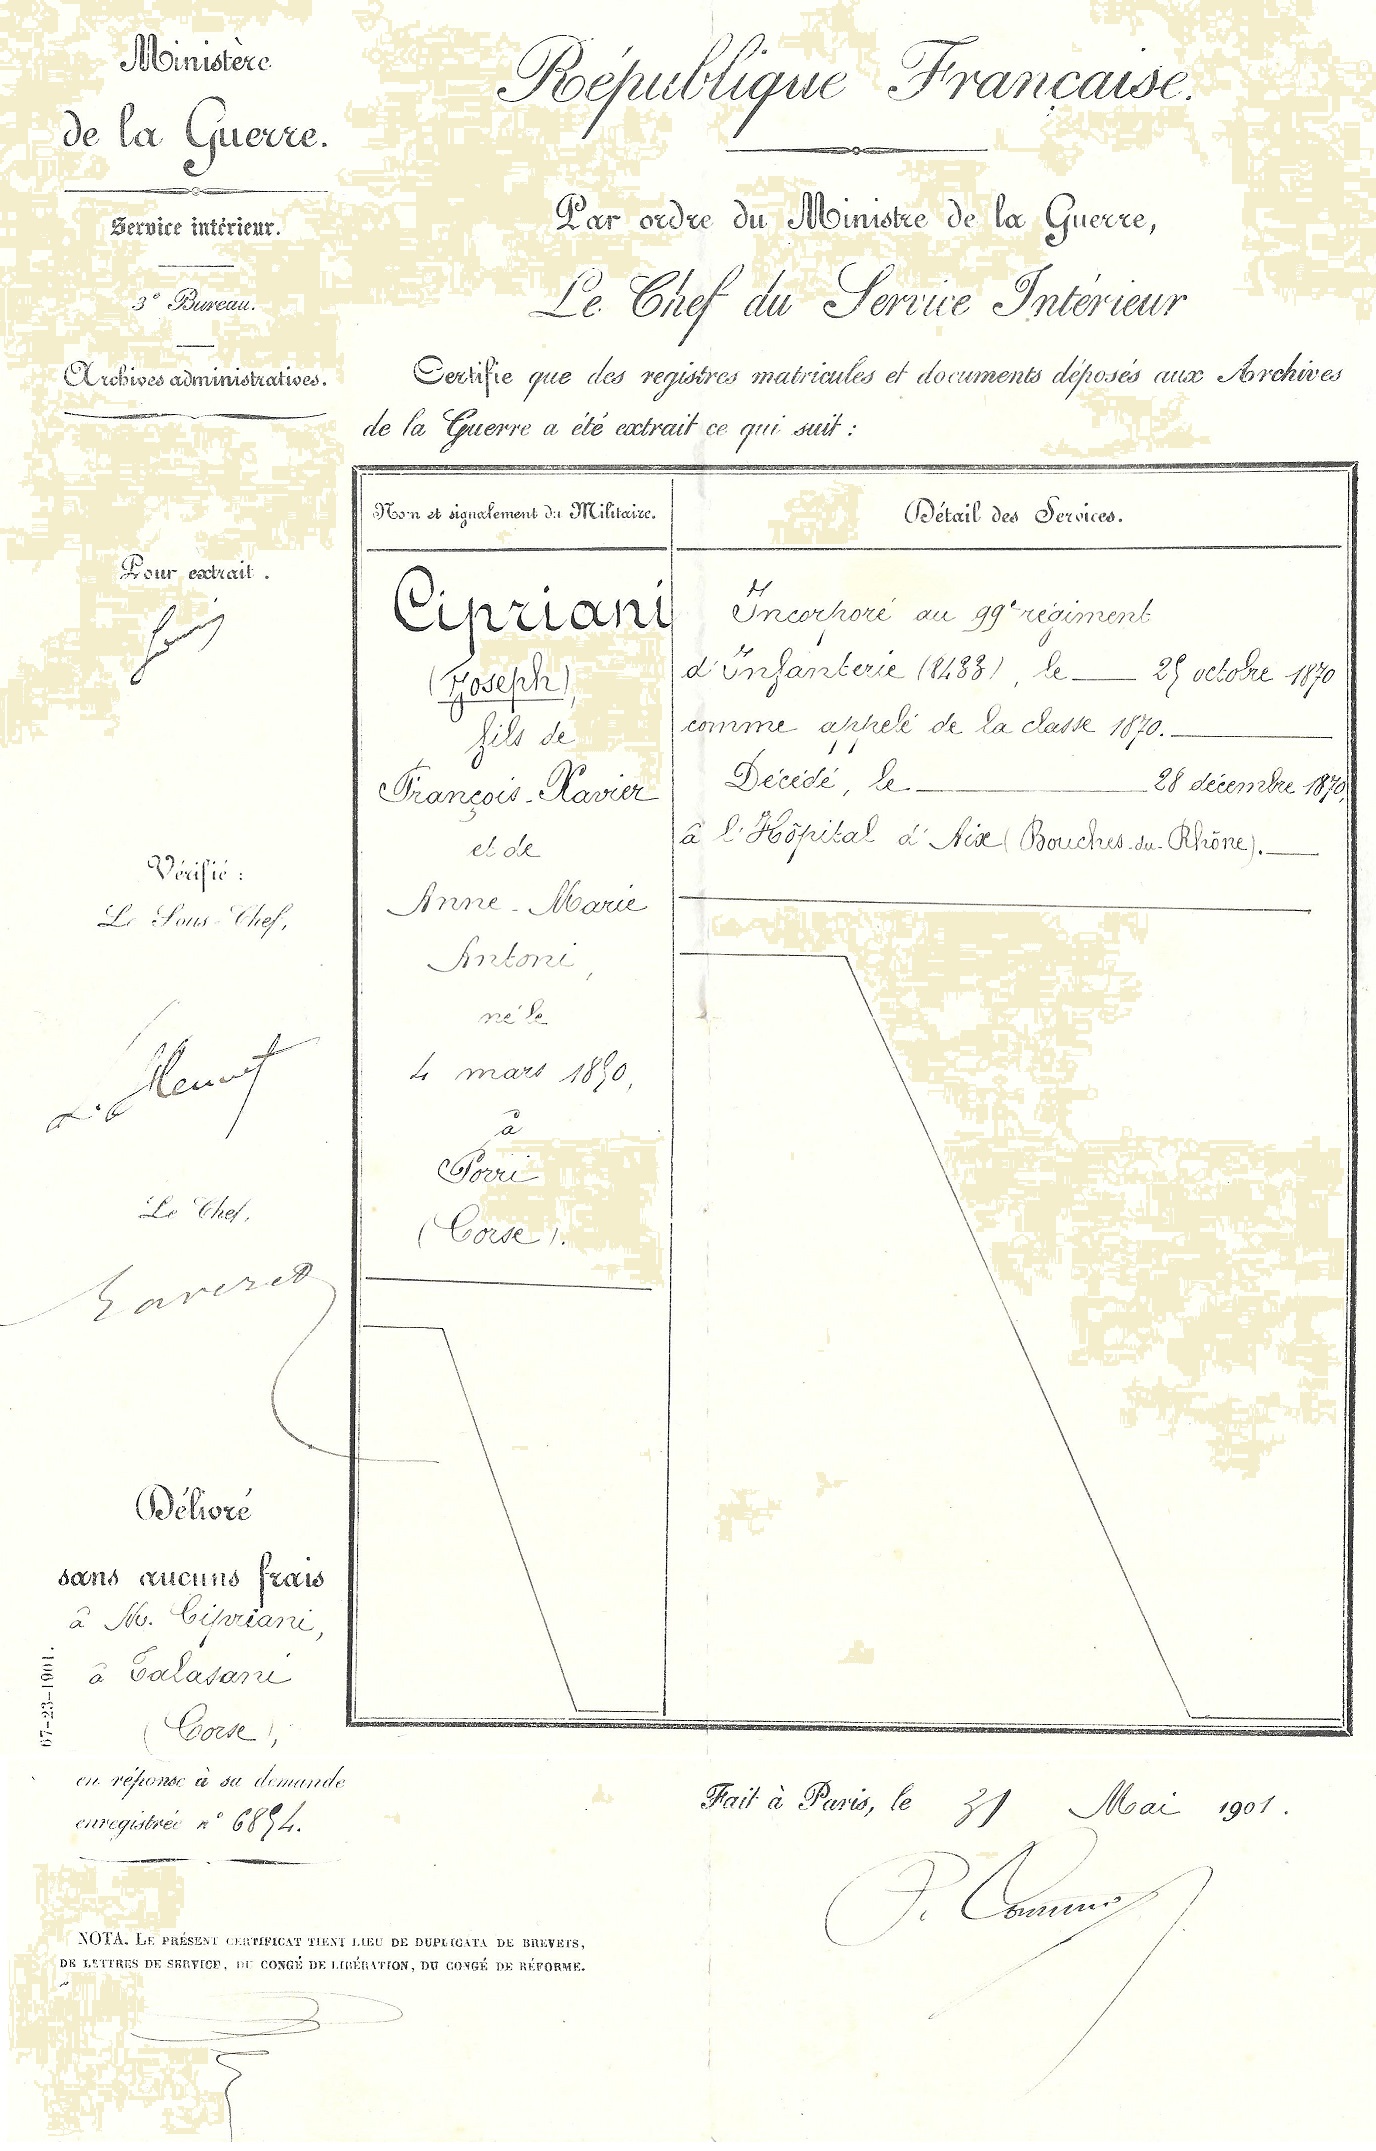 Ministère
de la Guerre.
Service intérieur.
3e Bureau.
Archives administratives.
République Française.
Par ordre du Ministre de la Guerre,
Le Chef du Service Intérieur
Certifie que des registres matricules et documents déposés aux Archives
de la Guerre a été extrait ce qui suit :
Nom et signalement du Militaire.
Cipriani
(Joseph),
fils de
François-Xavier
et de
Anne-Marie
Antoni,
né le
4 mars 1850,
à
Porri
(Corse).
Détail des Services.
Incorporé au 99e régiment
d'Infanterie (8433), le 25 octobre 1870
comme appelé de la classe 1870.
Décédé, le 28 décembre 1870,
à l'Hôpital d'Aix (Bouches-du-Rhône).
Pour extrait.
Vérifié :
Le Sous-Chef,
Le Chef,
Délivré
sans aucuns frais
à M. Cipriani,
à Talasani
(Corse),
en réponse à sa demande
enregistrée n° 6854.
67-23-1901.
Fait à Paris, le 31 Mai 1901.
NOTA. LE PRÉSENT CERTIFICAT TIENT LIEU DE DUPLICATA DE BREVETS,
DE LETTRES DE SERVICE, DU CONGÉ DE LIBÉRATION, DU CONGÉ DE RÉFORME.